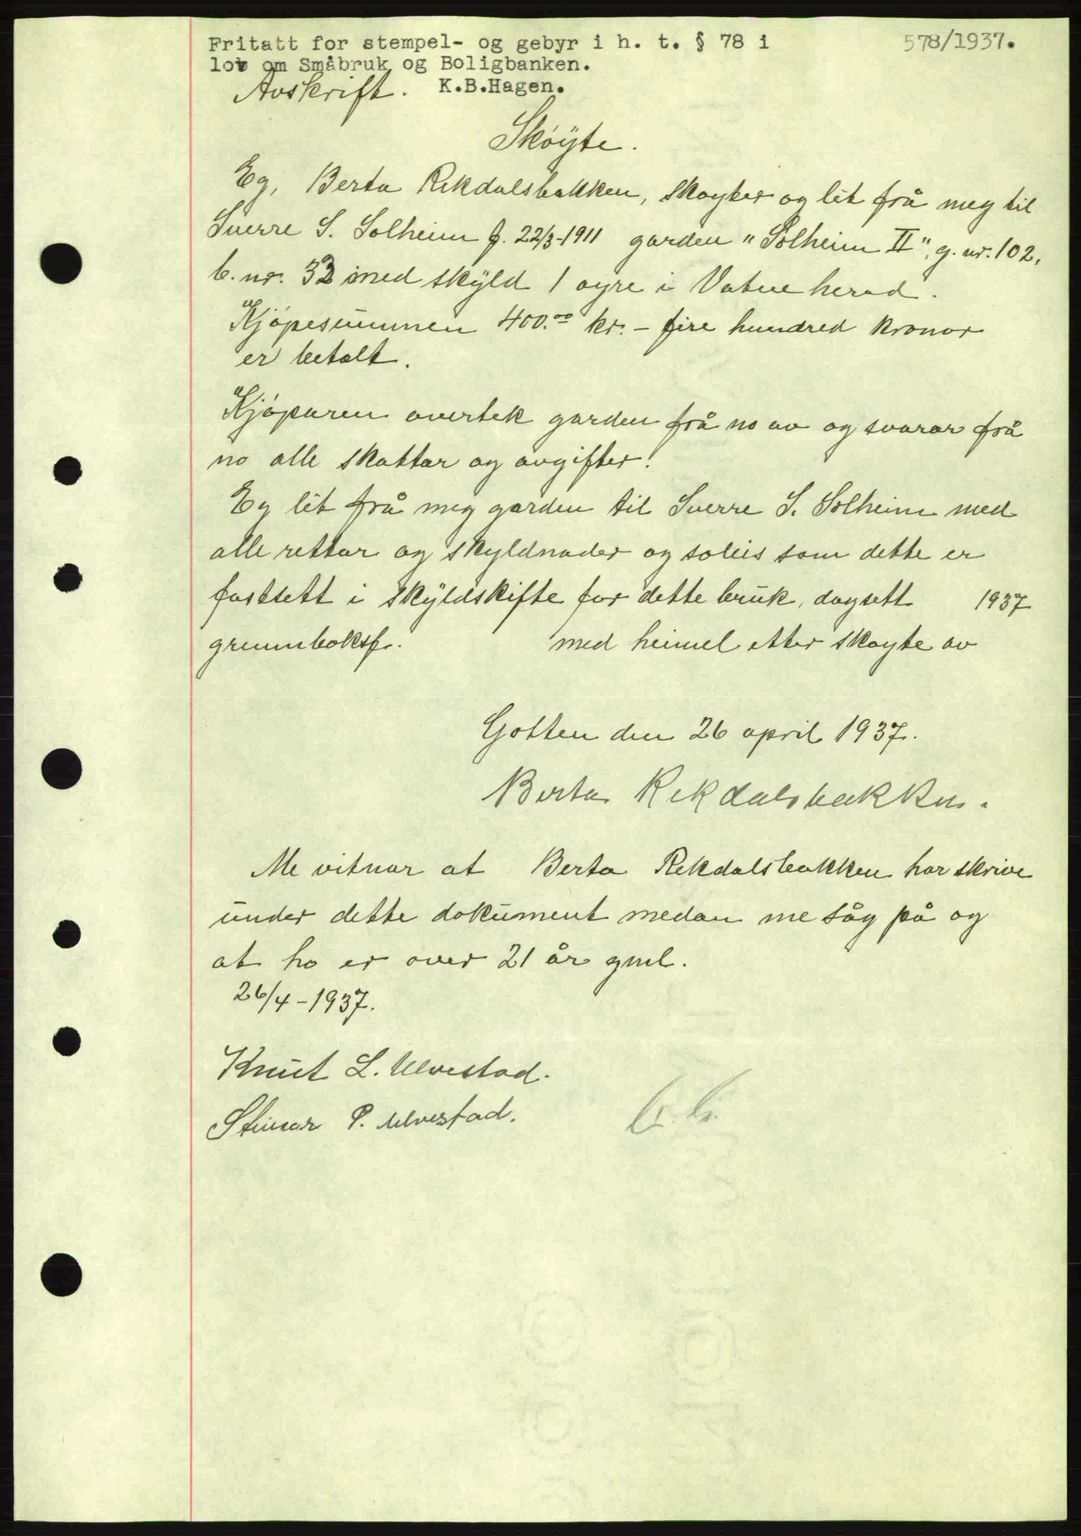 Fritatt for stempel- og gebyr i h. t. § 78 i
578/1937.
lov om Småbruk og Boligbanken.
Avskrift. K.B.Hagen.
Skøyte.
Eg, Berta Rekdalsbakken, skøyter og lèt frå meg til
Sverre S. Solheim f. 22/3-1911 garden "Solheim II", g. nr. 102,
b. nr. 32 med skyld 1 øyre i Vatne herad.
Kjøpesummen 400.00 kr. - fire hundred kronor
er betalt.
Kjøparen overtek garden frå no av og svarar frå
no alle skattar og avgifter.
Eg lèt frå meg garden til Sverre S. Solheim med
alle rettar og skyldnader og soleis som dette er
fastsett i skyldskifte for dette bruk, dagsett 1937
grunnboksf. med heimel etter skøyte av
Gotten den 26 april 1937.
Berta Rekdalsbakken.
Me vitnar at Berta Rekdalsbakken har skrive
under dette dokument medan me såg på og
at ho er over 21 år gml.
26/4-1937.
Knut L. Ulvestad.
Steinar P. Ulvestad.